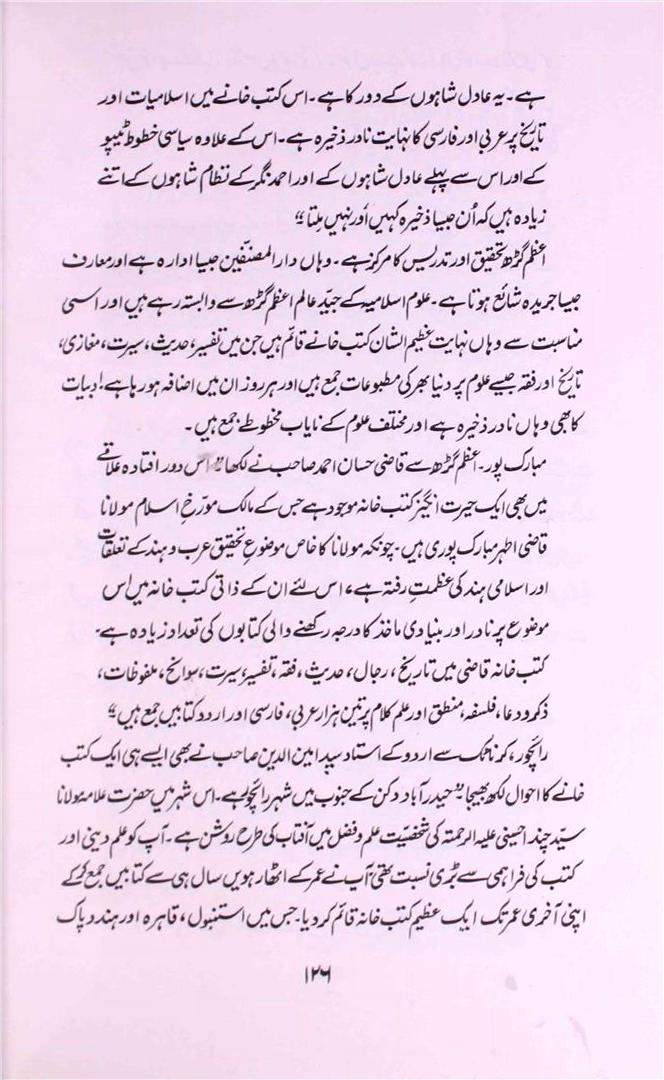 ہے۔ یہ عادل شاہوں کے دور کا ہے۔ اس کتب خانے میں اسلامیات اور
تاریخ پر عربی اور فارسی کا نہایت نادر ذخیرہ ہے۔ اس کے علاوہ سیاسی خطوط ٹیپو
کے اور اس سے پہلے عادل شاہوں کے اور احمد نگر کے نظام شاہوں کے اتنے
زیادہ ہیں کہ اُن جیسا ذخیرہ کہیں اور نہیں ملتا“
اعظم گڑھ تحقیق اور تدریس کا مرکز ہے۔ وہاں دار المصنّفین جیسا ادارہ ہے اور معارف
جیسا جریدہ شائع ہوتا ہے۔ علوم اسلامیہ کے جیّد عالم اعظم گڑھ سے وابستہ رہے ہیں اور اسی
مناسبت سے وہاں نہایت عظیم الشان کتب خانے قائم ہیں جن میں تفسیر، حدیث، سیرت، مغازی،
تاریخ اور فقہ جیسے علوم پر دنیا بھر کی مطبوعات جمع ہیں اور ہر روز ان میں اضافہ ہو رہا ہے! دبیات
کا بھی وہاں نادر ذخیرہ ہے اور مختلف علوم کے نایاب مخطوطے جمع ہیں۔
مبارک پور۔ اعظم گڑھ سے قاضی حسان احمد صاحب نے لکھا ”اس دور افتادہ علاقے
میں بھی ایک حیرت انگیز کتب خانہ موجود ہے جس کے مالک مورّخ اسلام مولانا
قاضی اطہر مبارک پوری ہیں۔ چونکہ مولانا کا خاص موضوع تحقیق عرب و ہند کے تعلقات
اور اسلامی ہند کی عظمتِ رفتہ ہے، اس لئے ان کے ذاتی کتب خانہ میں اس
موضوع پر نادر اور بنیادی ماخذ کا درجہ رکھنے والی کتابوں کی تعداد زیادہ ہے۔
کتب خانہ قاضی میں تاریخ، رجال، حدیث، فقہ، تفسیر، سیرت، سوانح، ملفوظات،
ذکر و دعا، فلسفہ، منطق اور علم کلام پر تین ہزار عربی، فارسی اور اردو کتابیں جمع ہیں“
رائچور، کرناٹک سے اردو کے استاد سید امین الدین صاحب نے بھی ایسے ہی ایک کتب
خانے کا احوال لکھ بھیجا ”حیدرآباد دکن کے جنوب میں شہر رائچور ہے۔ اس شہر میں حضرت علامہ مولانا
سیّد چندا حسینی علیہ الرحمتہ کی شخصیّت علم و فضل میں آفتاب کی طرح روشن ہے۔ آپ کو علم دینی اور
کتب کی فراہمی سے بڑی نسبت تھی آپ نے عمر کے اٹھارہویں سال ہی سے کتابیں جمع کر کے
اپنی آخری عمر تک ایک عظیم کتب خانہ قائم کر دیا۔ جس میں استنبول، قاہرہ اور ہند و پاک
۱۲۶